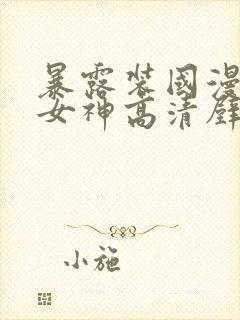 暴露装国漫
女神高清壁
小施